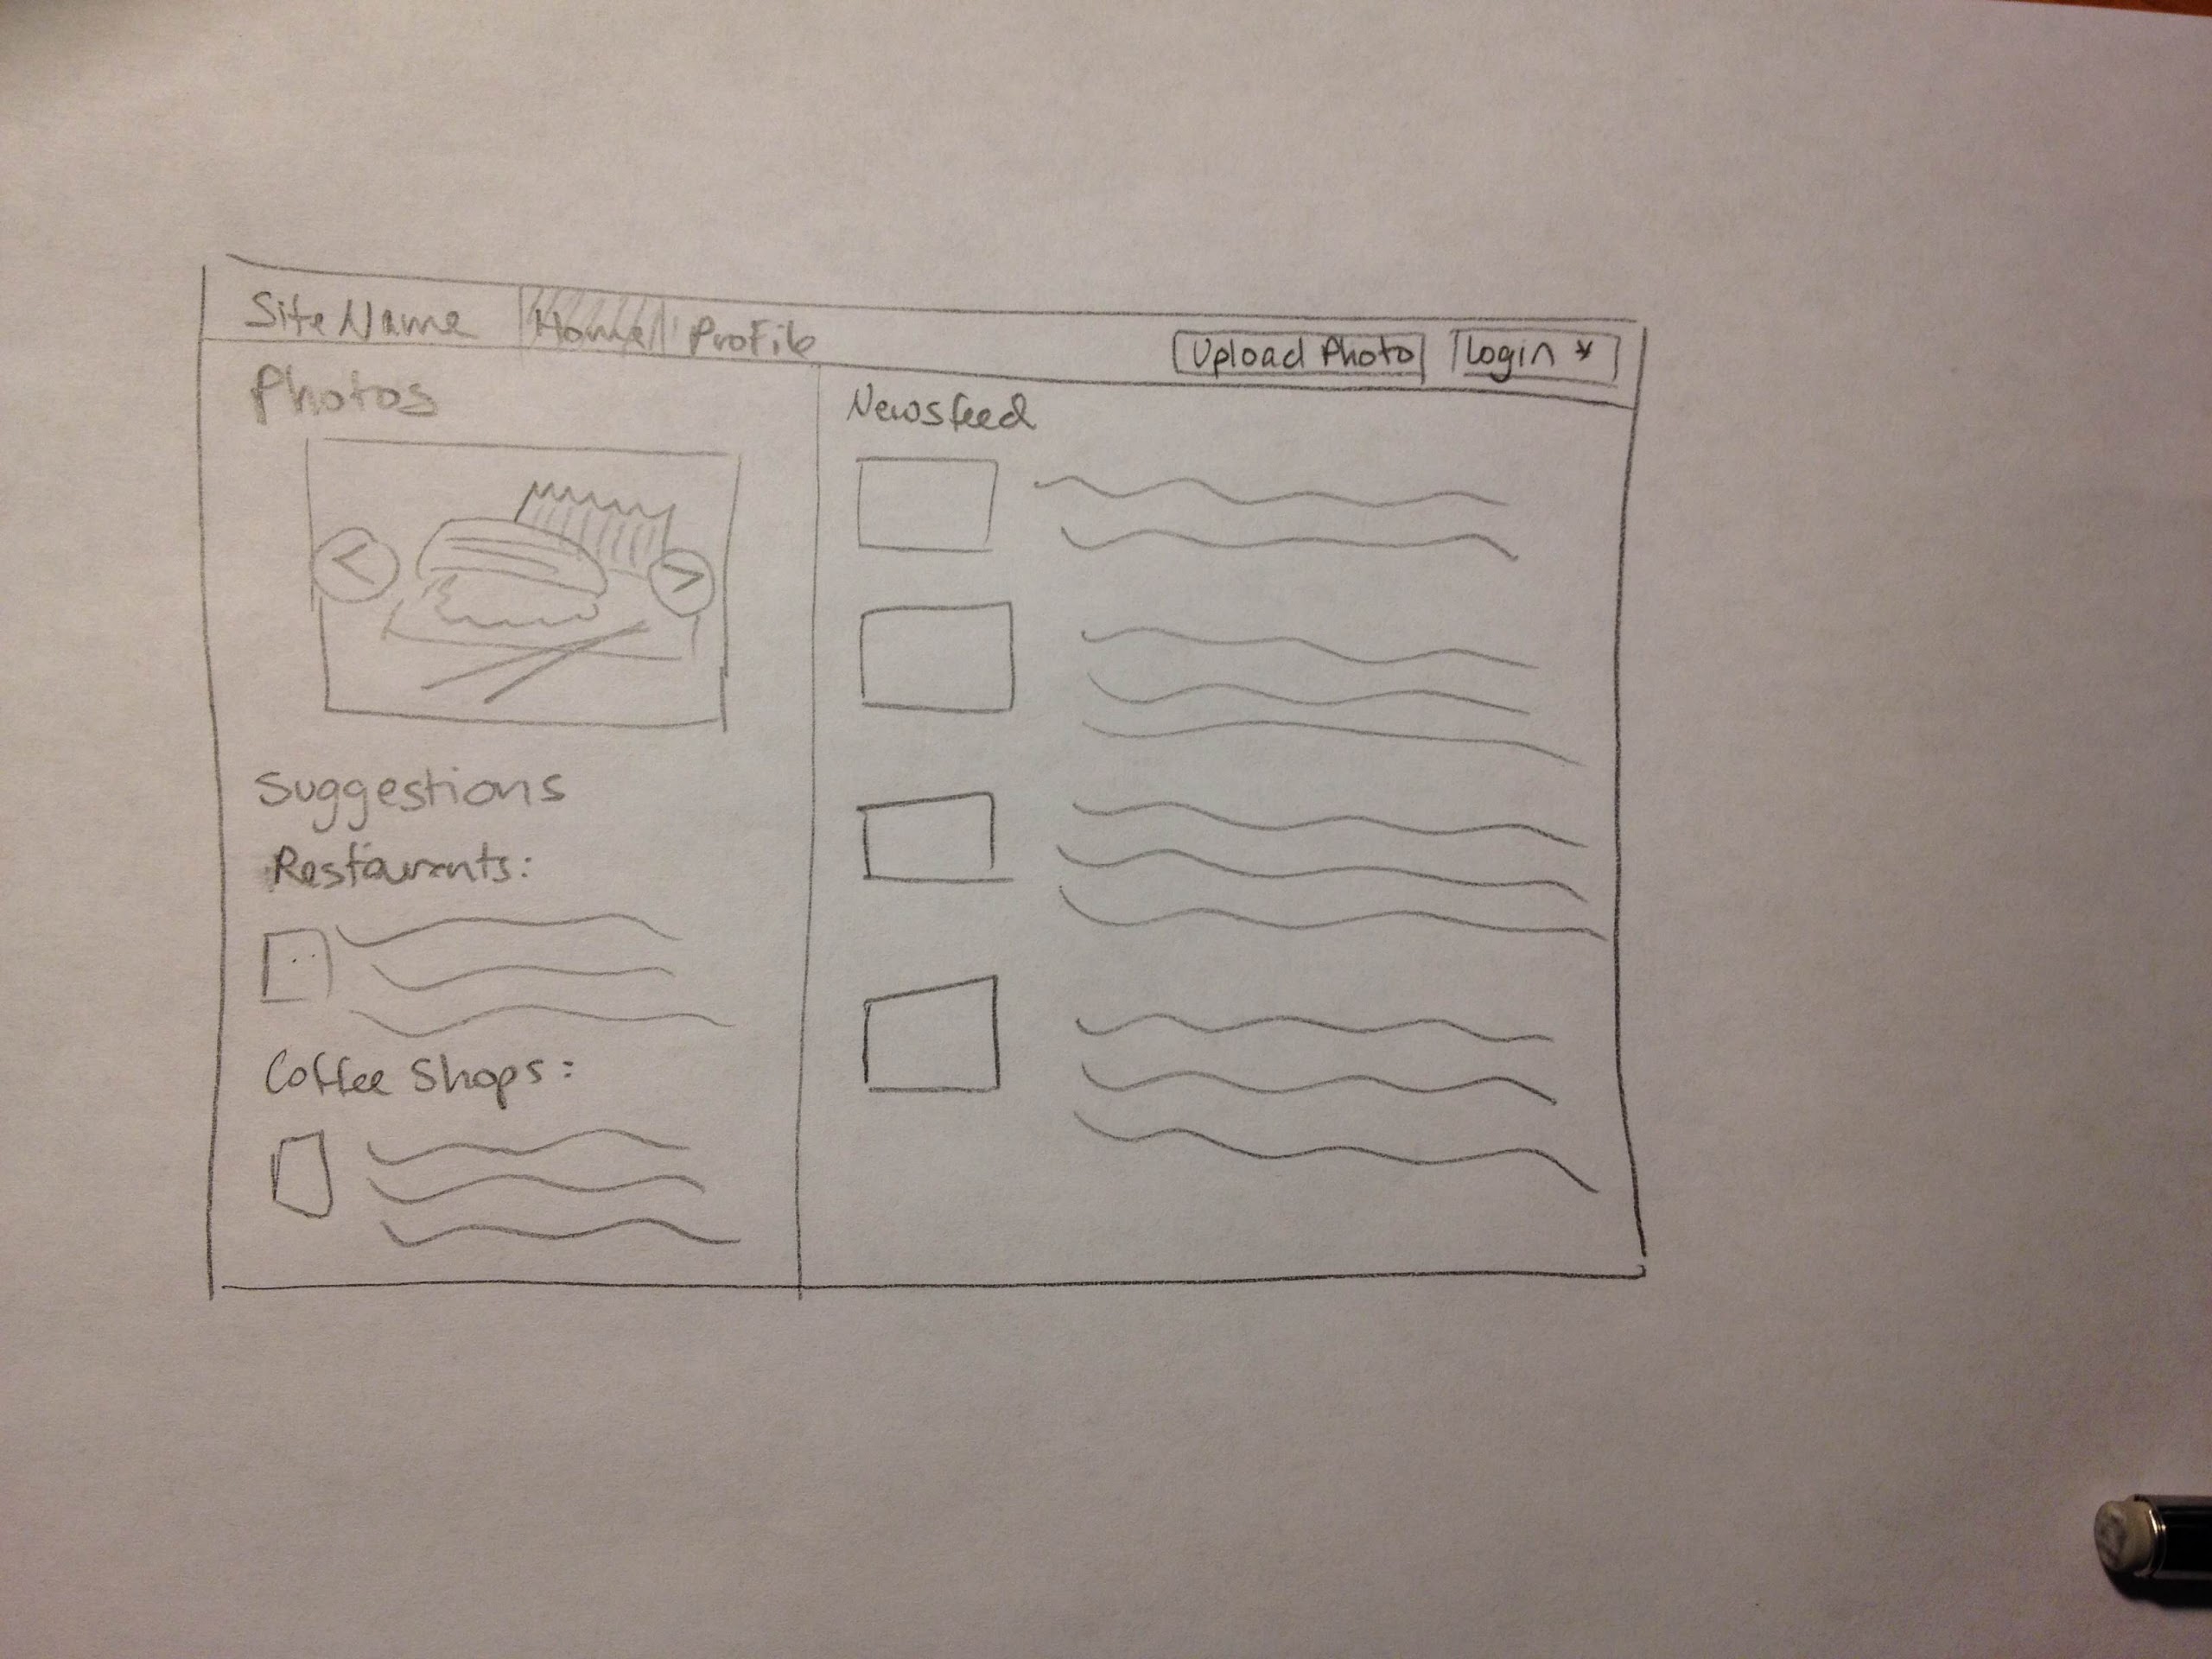 Site Name Home Profile Upload Photo Login
Photos
Newsfeed
Suggestions
Restaurants:
Coffee Shops: